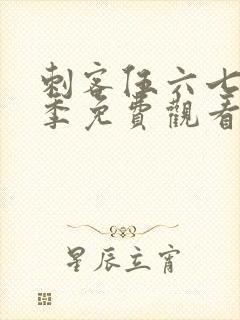 刺客伍六七
季免費觀看
星辰立宵